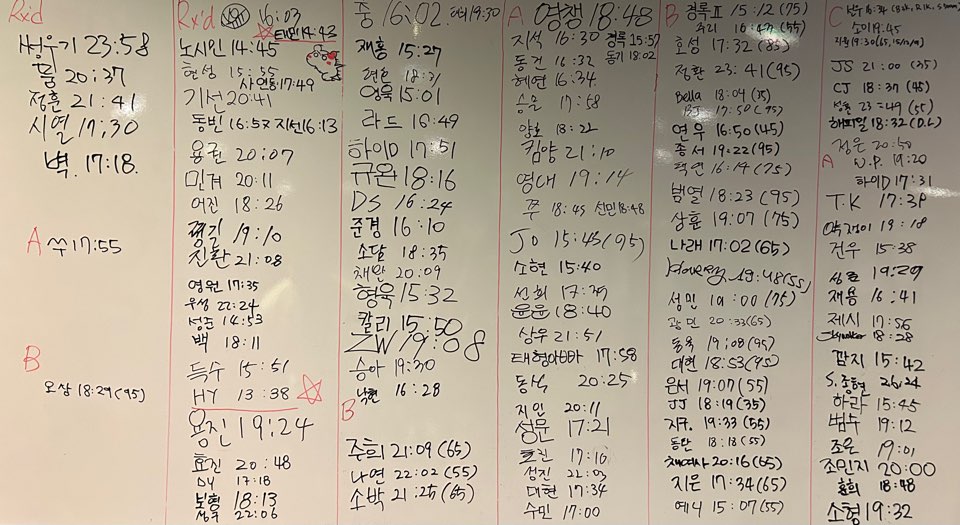 Rx'd
썽우기 23:58
풍 20:37
정훈 21:41
시열 17:30
벽. 17:18.
A
쑤 17:55
B
오상 18:29 (95)
Rx'd
16:03
태민 14:43
노시인 14:45
현성 15:55
사연동 17:49
기선 20:41
동빈 16:57 지선 16:13
용권 20:07
민거 20:11
어진 18:26
평길 19:10
진환 21:08
영원 17:35
우성 22:24
성준 14:53
백 18:11
득수 15:51
HY 13:38
용진 19:24
효진 20:48
DY 17:18
보형 18:13
성수 22:06
중 16:02
19:30
재홍 15:27
18:31
영욱 15:01
라드 16:49
하이D 17:51
규완 18:16
DS 16:24
준경 16:10
소달 18:35
채완 20:09
형욱 15:32
칼리 15:50
ZW 19:08
승아 19:30
낙현 16:28
B
주희 21:09 (65)
나연 22:02 (55)
소박 21:25 (65)
A
영쟁 18:48
지석 16:30 경록 15:57
동건 16:32 동기 18:02
혜연 16:34
승호 17:58
양호 18:22
킴양 21:10
영대 19:14
쭈 18:45 선민 18:48
JO 15:45 (95)
소현 15:40
선희 17:39
윤윤 18:40
상우 21:51
태형아빠 17:58
동식 20:25
지인 20:11
성문 17:21
효진 17:10
성진 22:03
대현 17:34
수민 17:00
B
경록II 15:12 (75)
주리 16:47 (55)
호성 17:32 (85)
정환 23:41 (95)
Bella 18:04 (35)
BJ 17:50 (75)
연우 16:50 (45)
종서 19:22 (95)
택연 16:14 (75)
범열 18:23 (95)
상훈 19:07 (75)
나래 17:02 (65)
19:48 (55)
성민 19:00 (75)
광민 20:33 (65)
동욱 19:08 (95)
대현 18:53 (95)
윤서 19:07 (55)
JJ 18:19 (35)
지우. 19:33 (55)
동완 18:18 (55)
채여사 20:16 (65)
지은 17:34 (65)
예니 15:07 (55)
C
노이 19:45
JS 21:00 (35)
CJ 18:37 (45)
성호 23:49 (55)
해피일 18:32 (D.L)
정은 20:50
A
W.P. 19:20
하이D 17:31
T.K 17:38
19:18
건우 15:38
상호 19:29
재용 16:41
제시 17:56
18:28
깜지 15:42
S.중현 26:24
하라 15:45
범수 19:12
조은 19:01
조민지 20:00
홍희 18:48
소형 19:32